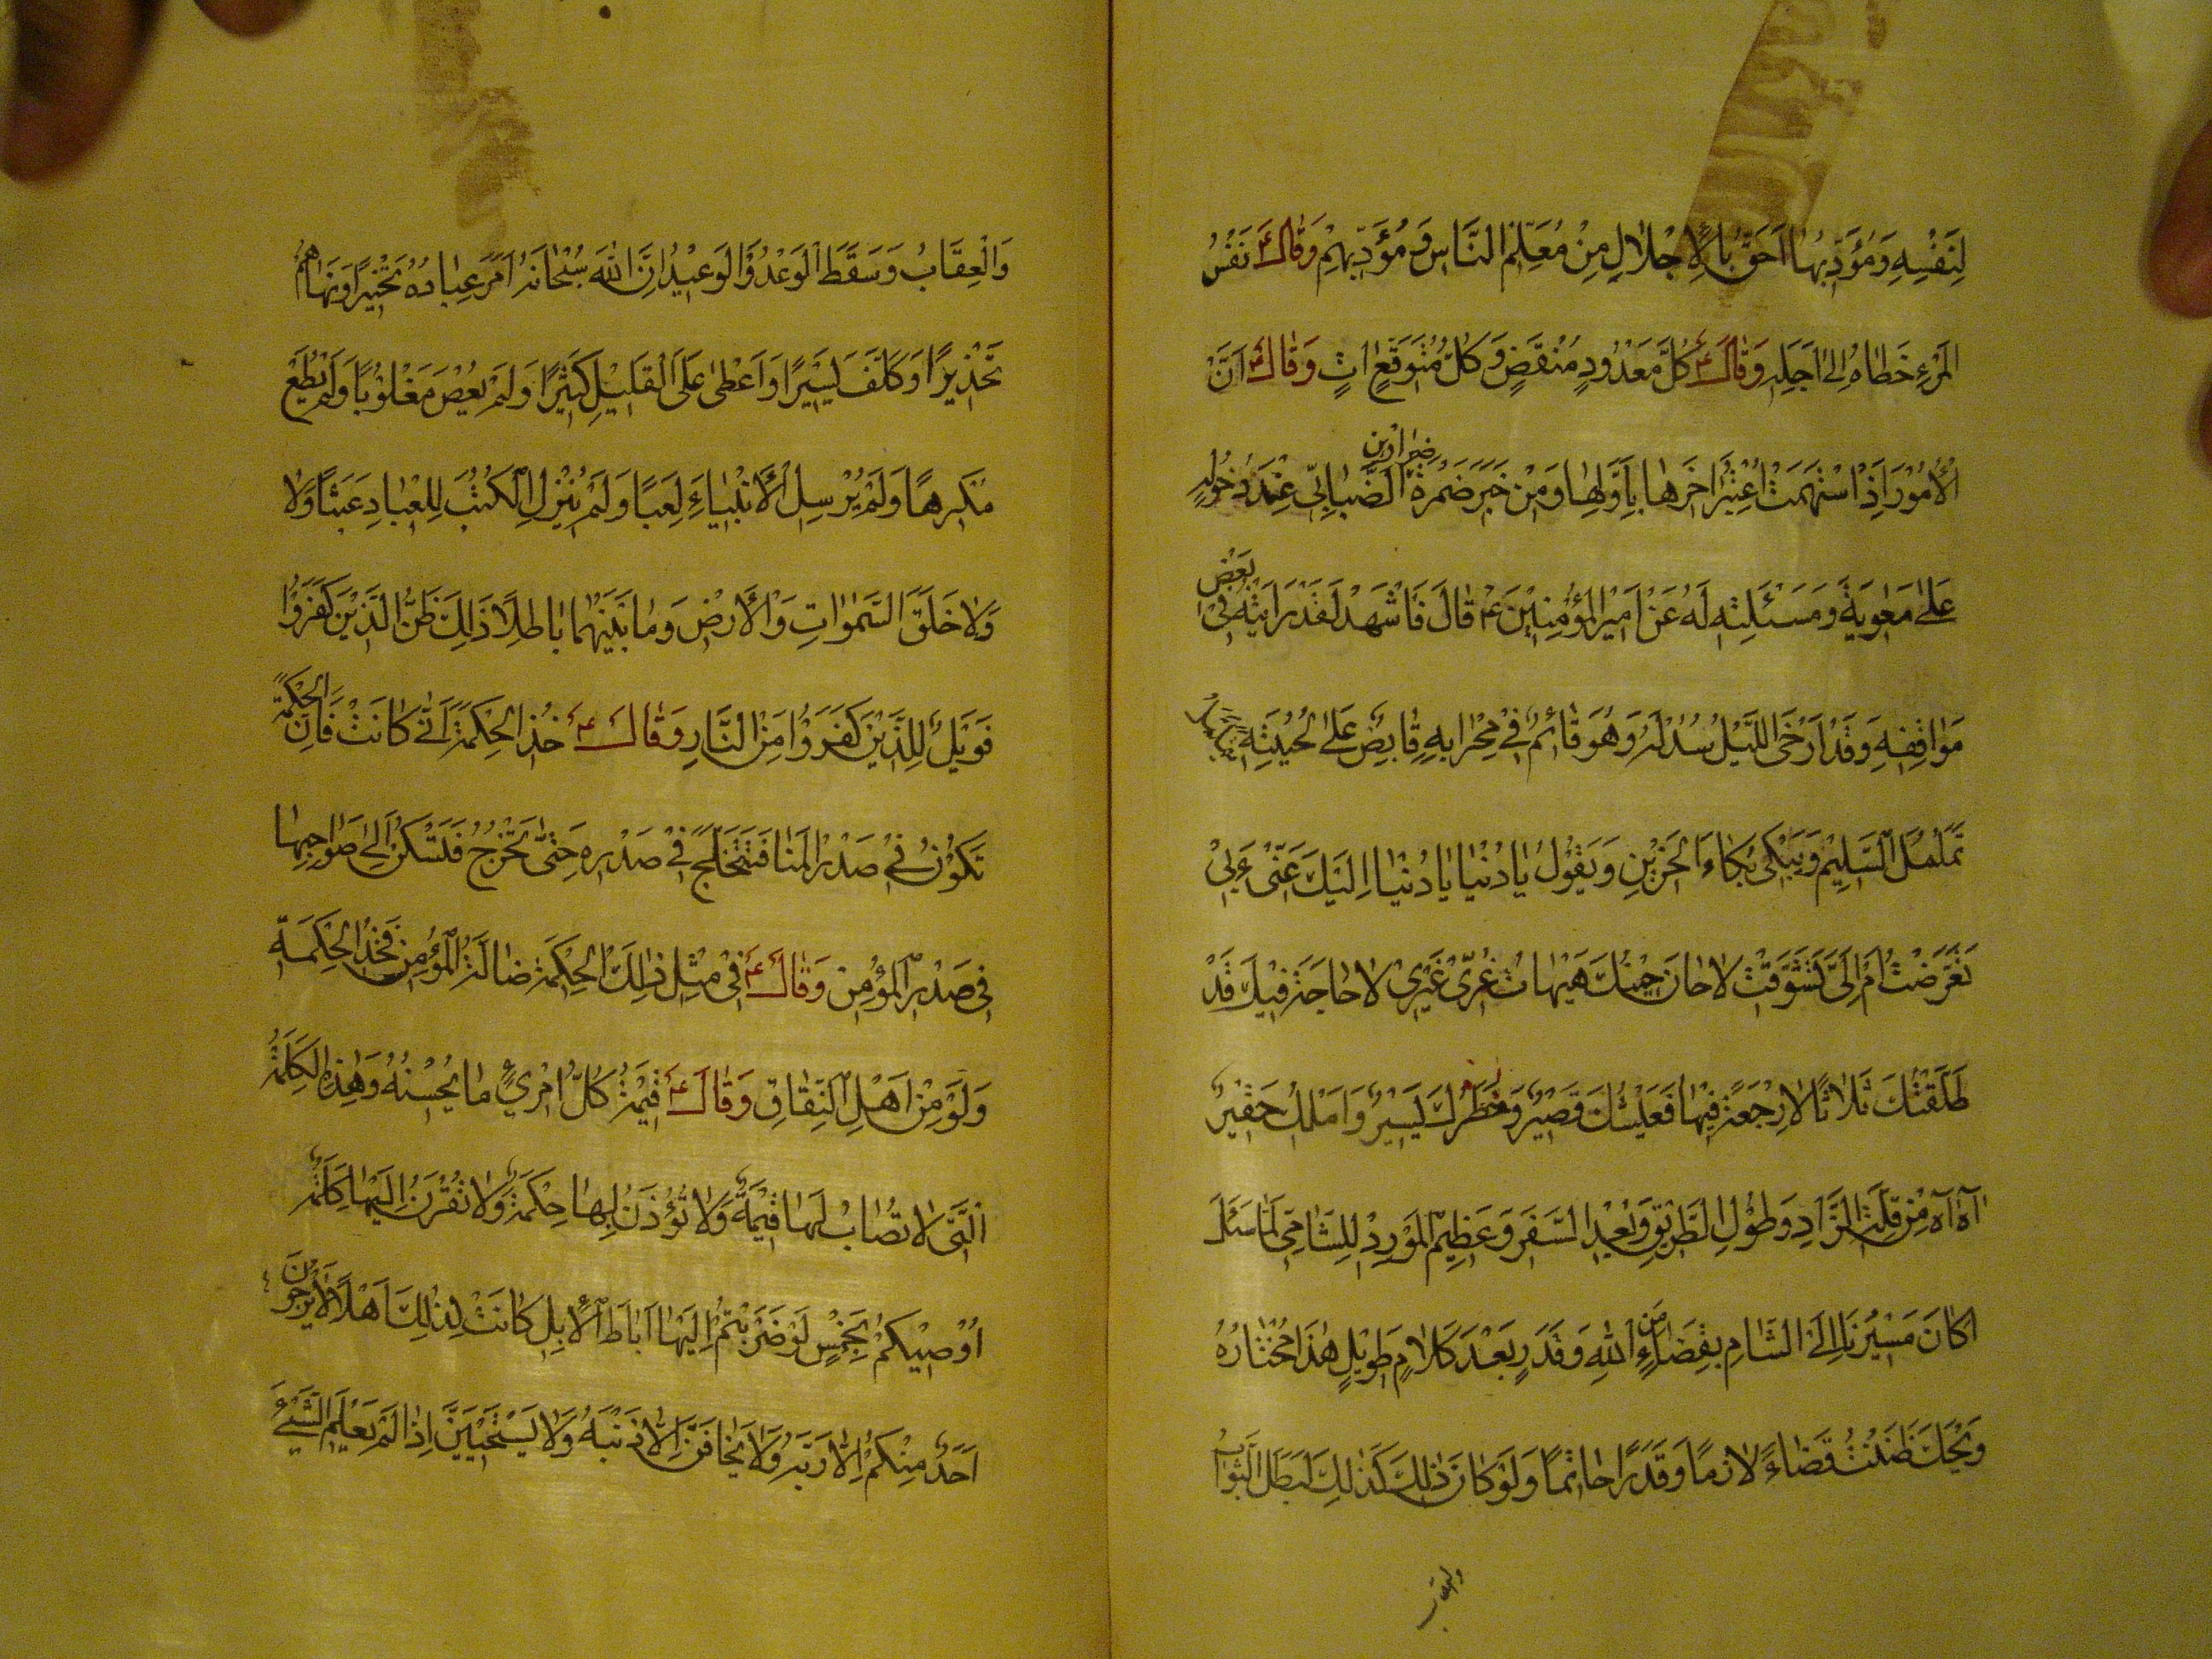 لِنَفْسِهِ وَمُؤَدِّبُهَا اَحَقُّ بِالْاِجْلَالِ مِنْ مُعَلِّمِ النَّاسِ وَ مُؤَدِّبِهِمْ وَقَالَ ۴ نَفَسُ
الْمَرْءِ خُطَاهُ اِلٰى اَجَلِهِ وَقَالَ ۴ كُلُّ مَعْدُودٍ مُنْقَضٍ وَكُلُّ مُتَوَقَّعٍ اٰتٍ وَقَالَ ۴ اِنَّ
الْاُمُوْرَ اِذَا اسْتَبْهَمَتْ اُعْتُبِرَ اٰخِرُهَا بِاَوَّلِهَا وَمِنْ خَبَرِ ضَمْرَةَ الضَّبَابِيِّ عِنْدَ دُخُوْلِهِ
ضرار ابن
عَلٰى مَعٰوِيَةَ وَ مَسْئَلَتِهِ لَهُ عَنْ اَمِيْرِ الْمُؤْمِنِيْنَ ۴ قَالَ فَاَشْهَدُ لَقَدْ رَاَيْتُهُ فِيْ بَعْضِ
مَوَاقِفِهِ وَقَدْ اَرْخَى اللَّيْلُ سُدُوْلَهُ وَهُوَ قَائِمٌ فِيْ مِحْرَابِهِ قَابِضٌ عَلٰى لِحْيَتِهِ
تَمَلْمُلَ السَّلِيْمِ وَيَبْكِيْ بُكَاءَ الْحَزِيْنِ وَيَقُوْلُ يَا دُنْيَا يَا دُنْيَا اِلَيْكِ عَنِّيْ اَبِيْ
تَعَرَّضْتِ اَمْ اِلَيَّ تَشَوَّقْتِ لَا حَانَ حِيْنُكِ هَيْهَاتَ غُرِّيْ غَيْرِيْ لَا حَاجَةَ فِيْكِ قَدْ
طَلَّقْتُكِ ثَلَاثًا لَا رَجْعَةَ فِيْهَا فَعَيْشُكِ قَصِيْرٌ وَخَطَرُكِ يَسِيْرٌ وَاَمَلُكِ حَقِيْرٌ
اٰهِ اٰهِ مِنْ قِلَّةِ الزَّادِ وَطُوْلِ الطَّرِيْقِ وَبُعْدِ السَّفَرِ وَعَظِيْمِ الْمَوْرِدِ لِلشَّامِيِّ لَمَّا سَئَلَهُ
اَكَانَ مَسِيْرُنَا اِلَى الشَّامِ بِقَضَاءٍ مِنَ اللّٰهِ وَقَدَرٍ بَعْدَ كَلَامٍ طَوِيْلٍ هٰذَا مُخْتَارُهُ
وَيْحَكَ ظَنَنْتَ قَضَاءً لَازِمًا وَقَدَرًا حَاتِمًا وَلَوْ كَانَ ذٰلِكَ كَذٰلِكَ لَبَطَلَ الثَّوَابُ
والعقاب
وَالْعِقَابُ وَسَقَطَ الْوَعْدُ وَالْوَعِيْدُ اِنَّ اللّٰهَ سُبْحَانَهُ اَمَرَ عِبَادَهُ تَخْيِيْرًا وَنَهَاهُمْ
تَحْذِيْرًا وَكَلَّفَ يَسِيْرًا وَاَعْطٰى عَلَى الْقَلِيْلِ كَثِيْرًا وَلَمْ يُعْصَ مَغْلُوْبًا وَلَمْ يُطَعْ
مُكْرِهًا وَلَمْ يُرْسِلِ الْاَنْبِيَاءَ لَعِبًا وَلَمْ يُنْزِلِ الْكُتُبَ لِلْعِبَادِ عَبَثًا وَلَا
وَلَا خَلَقَ السَّمٰوَاتِ وَالْاَرْضَ وَمَا بَيْنَهُمَا بَاطِلًا ذٰلِكَ ظَنُّ الَّذِيْنَ كَفَرُوْا
فَوَيْلٌ لِلَّذِيْنَ كَفَرُوْا مِنَ النَّارِ وَقَالَ ۴ خُذِ الْحِكْمَةَ اَنّٰى كَانَتْ فَاِنَّ الْحِكْمَةَ
تَكُوْنُ فِيْ صَدْرِ الْمُنَافِقِ فَتَخَلَّجُ فِيْ صَدْرِهِ حَتّٰى تَخْرُجَ فَتَسْكُنَ اِلٰى صَوَاحِبِهَا
فِي صَدْرِ الْمُؤْمِنِ وَقَالَ ۴ فِيْ مِثْلِ ذٰلِكَ الْحِكْمَةُ ضَالَّةُ الْمُؤْمِنِ فَخُذِ الْحِكْمَةَ
وَلَوْ مِنْ اَهْلِ النِّفَاقِ وَقَالَ ۴ قِيْمَةُ كُلِّ امْرِئٍ مَا يُحْسِنُهُ وَهٰذِهِ الْكَلِمَةُ
الَّتِيْ لَا تُصَابُ لَهَا قِيْمَةٌ وَلَا تُؤْذَنُ بِهَا حِكْمَةٌ وَلَا تُقْرَنُ اِلَيْهَا كَلِمَةٌ
اُوْصِيْكُمْ بِخَمْسٍ لَوْ ضَرَبْتُمْ اِلَيْهَا اٰبَاطَ الْاِبِلِ كَانَتْ لِذٰلِكَ اَهْلًا لَا يَرْجُوَنَّ
اَحَدٌ مِنْكُمْ اِلَّا رَبَّهُ وَلَا يَخَافَنَّ اِلَّا ذَنْبَهُ وَلَا يَسْتَحْيِيَنَّ اِذَا لَمْ يَعْلَمِ الشَّيْءَ